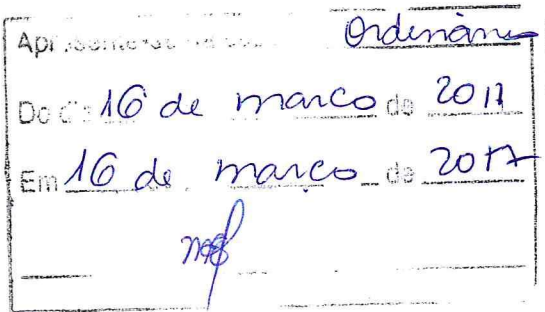 Ordinária
Do dia 16 de março de 2017
Em 16 de março de 2017